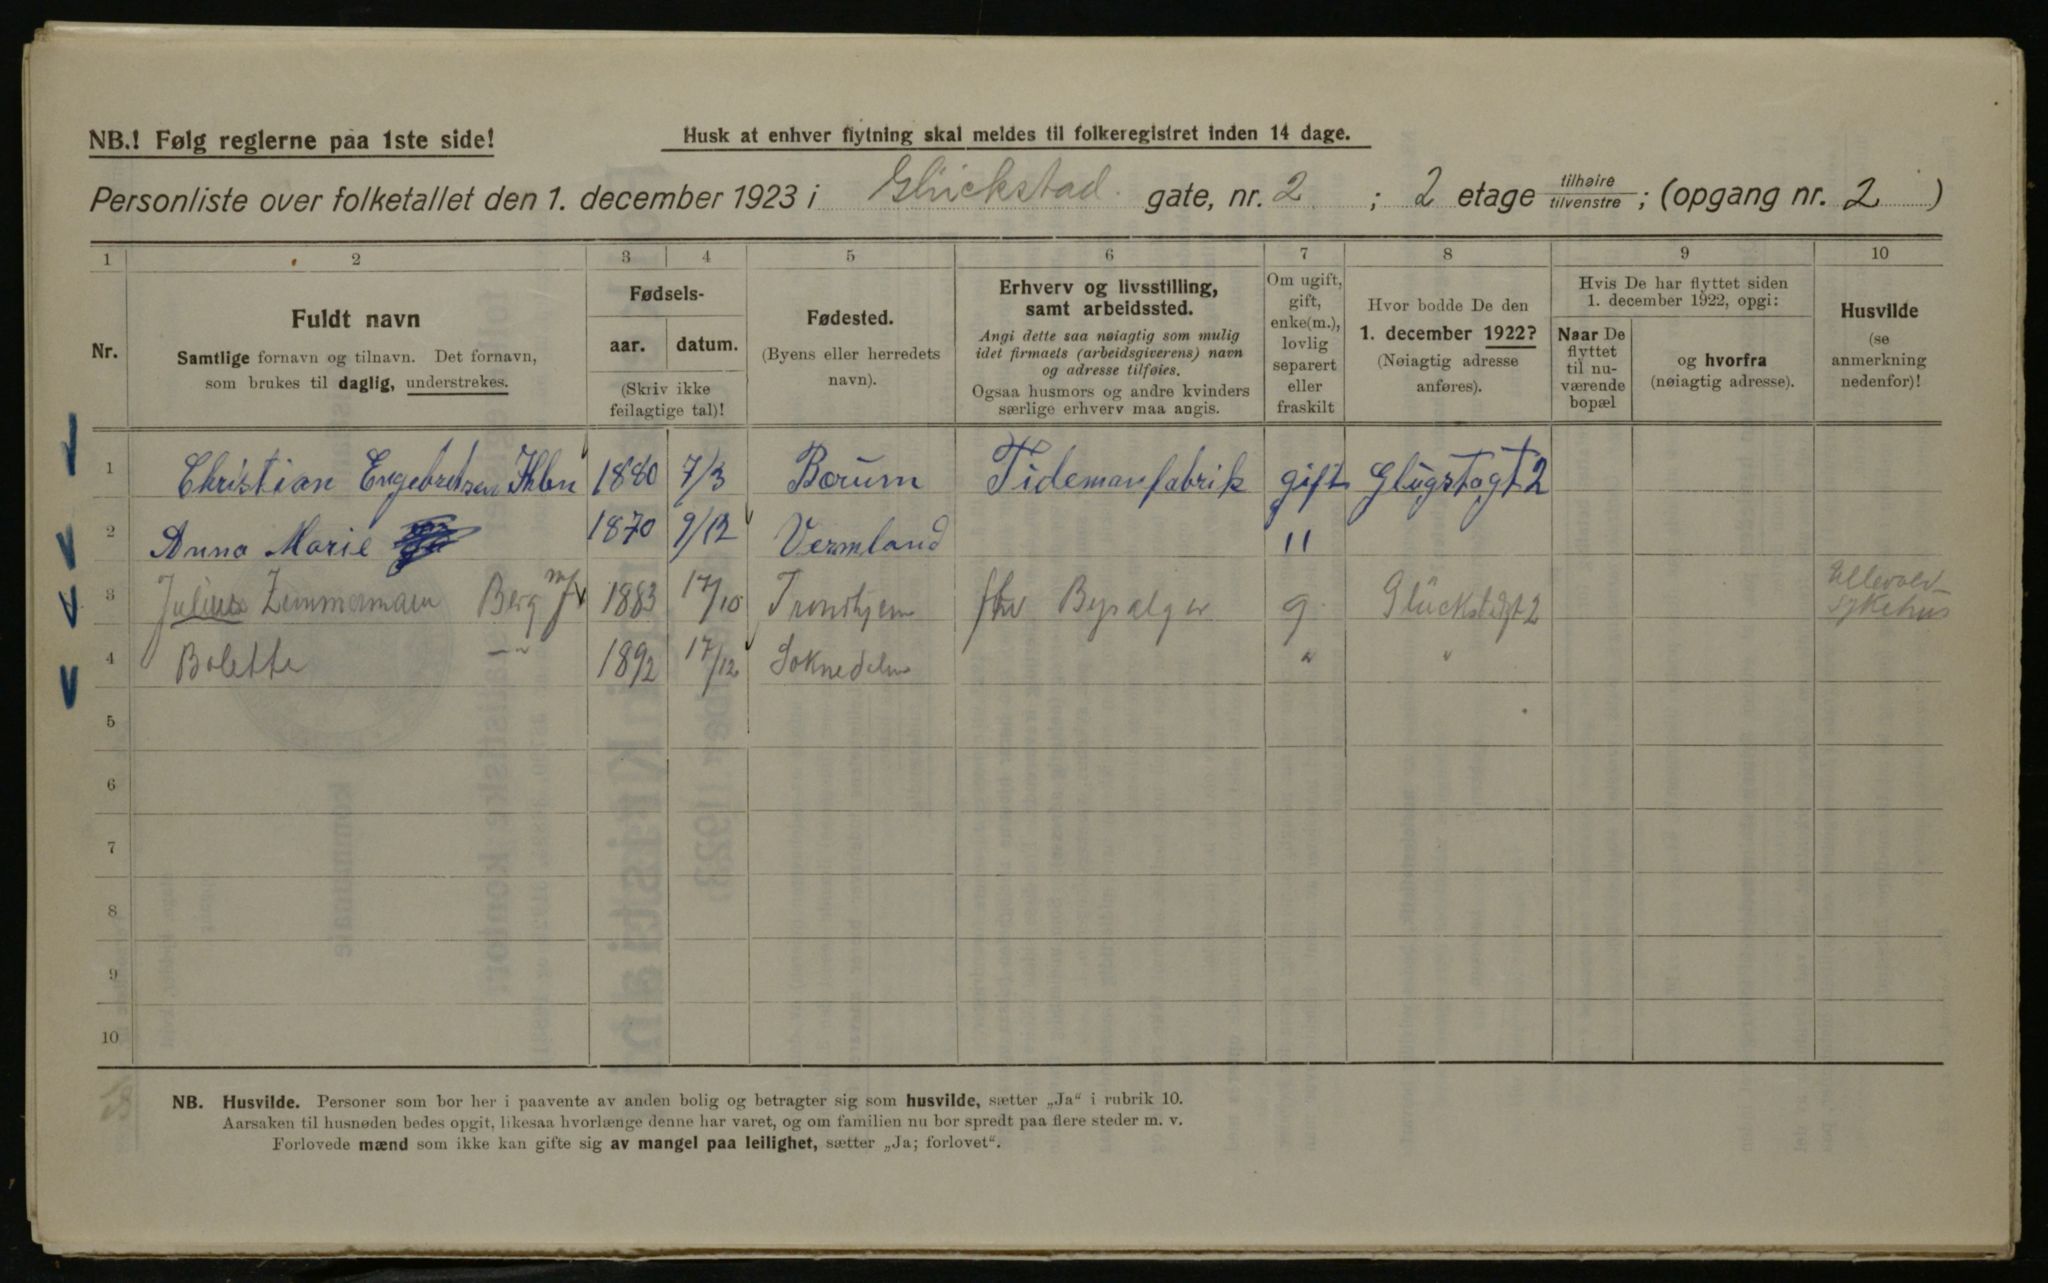 NB.! Følg reglerne paa 1ste side!
Husk at enhver flytning skal meldes til folkeregistret inden 14 dage.
Personliste over folketallet den 1. december 1923 i Glückstad gate, nr. 2 ; 2 etage tilhøire/tilvenstre ; (opgang nr. 2 )
1 2 3 4 5 6 7 8 9 10
Nr.
Fuldt navn
Samtlige fornavn og tilnavn. Det fornavn,
som brukes til daglig, understrekes.
Fødsels-
aar. datum.
(Skriv ikke
feilagtige tal)!
Fødested.
(Byens eller herredets
navn).
Erhverv og livsstilling,
samt arbeidssted.
Angi dette saa nøiagtig som mulig
idet firmaets (arbeidsgiverens) navn
og adresse tilføies.
Ogsaa husmors og andre kvinders
særlige erhverv maa angis.
Om ugift,
gift,
enke(m.),
lovlig
separert
eller
fraskilt
Hvor bodde De den
1. december 1922?
(Nøiagtig adresse
anføres).
Hvis De har flyttet siden
1. december 1922, opgi:
Naar De
flyttet
til nu-
værende
bopæl
og hvorfra
(nøiagtig adresse).
Husvilde
(se
anmerkning
nedenfor)!
1 Christian Engebretsen 1880 7/3 Bærum Tidemanfabrik gift Glugstagt 2
2 Anna Marie 1870 9/12 Vermland "
3 Julius Zimmermann Berg 1883 17/10 Trondhjem g Glückstadgt 2 sykehus
4 Bolette -"- 1892 17/12 Soknedalen " "
5
6
7
8
9
10
NB. Husvilde. Personer som bor her i paavente av anden bolig og betragter sig som husvilde, sætter „Ja" i rubrik 10.
Aarsaken til husnøden bedes opgit, likesaa hvorlænge denne har varet, og om familien nu bor spredt paa flere steder m. v.
Forlovede mænd som ikke kan gifte sig av mangel paa leilighet, sætter „Ja; forlovet".